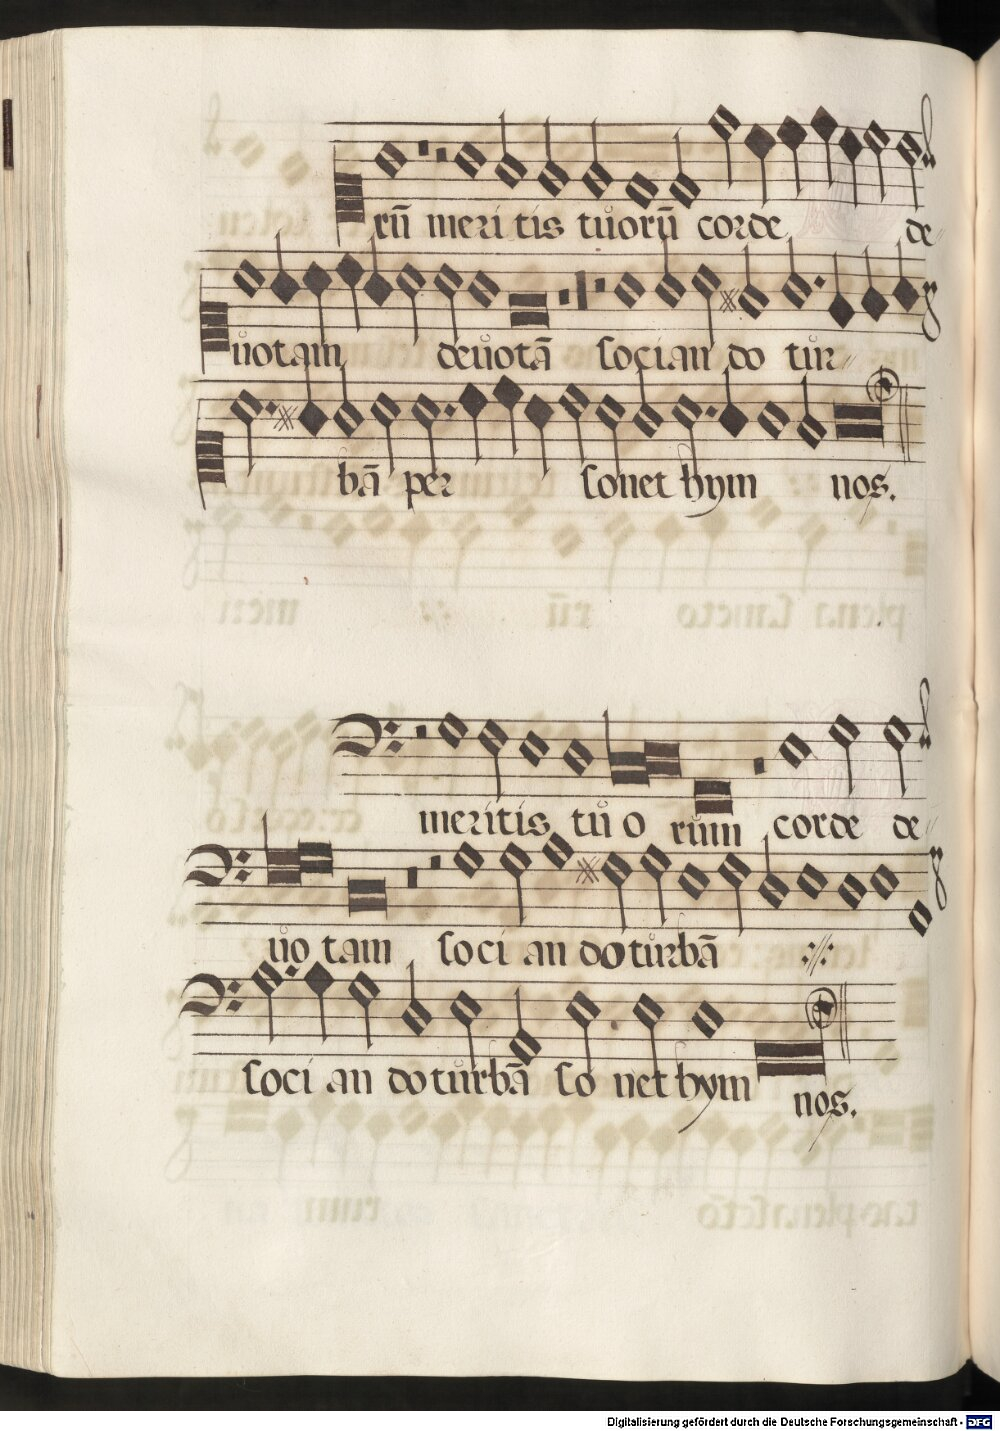 rū meri tis tůorū corde de
ůotam deůotā socian do tůr
bā per sonet hym nos.
meritis tů o rům corde de
ůo tam so ci an do tůrbā
soci an do tůrbā so net hym nos.
Digitalisierung gefördert durch die Deutsche Forschungsgemeinschaft - DFG